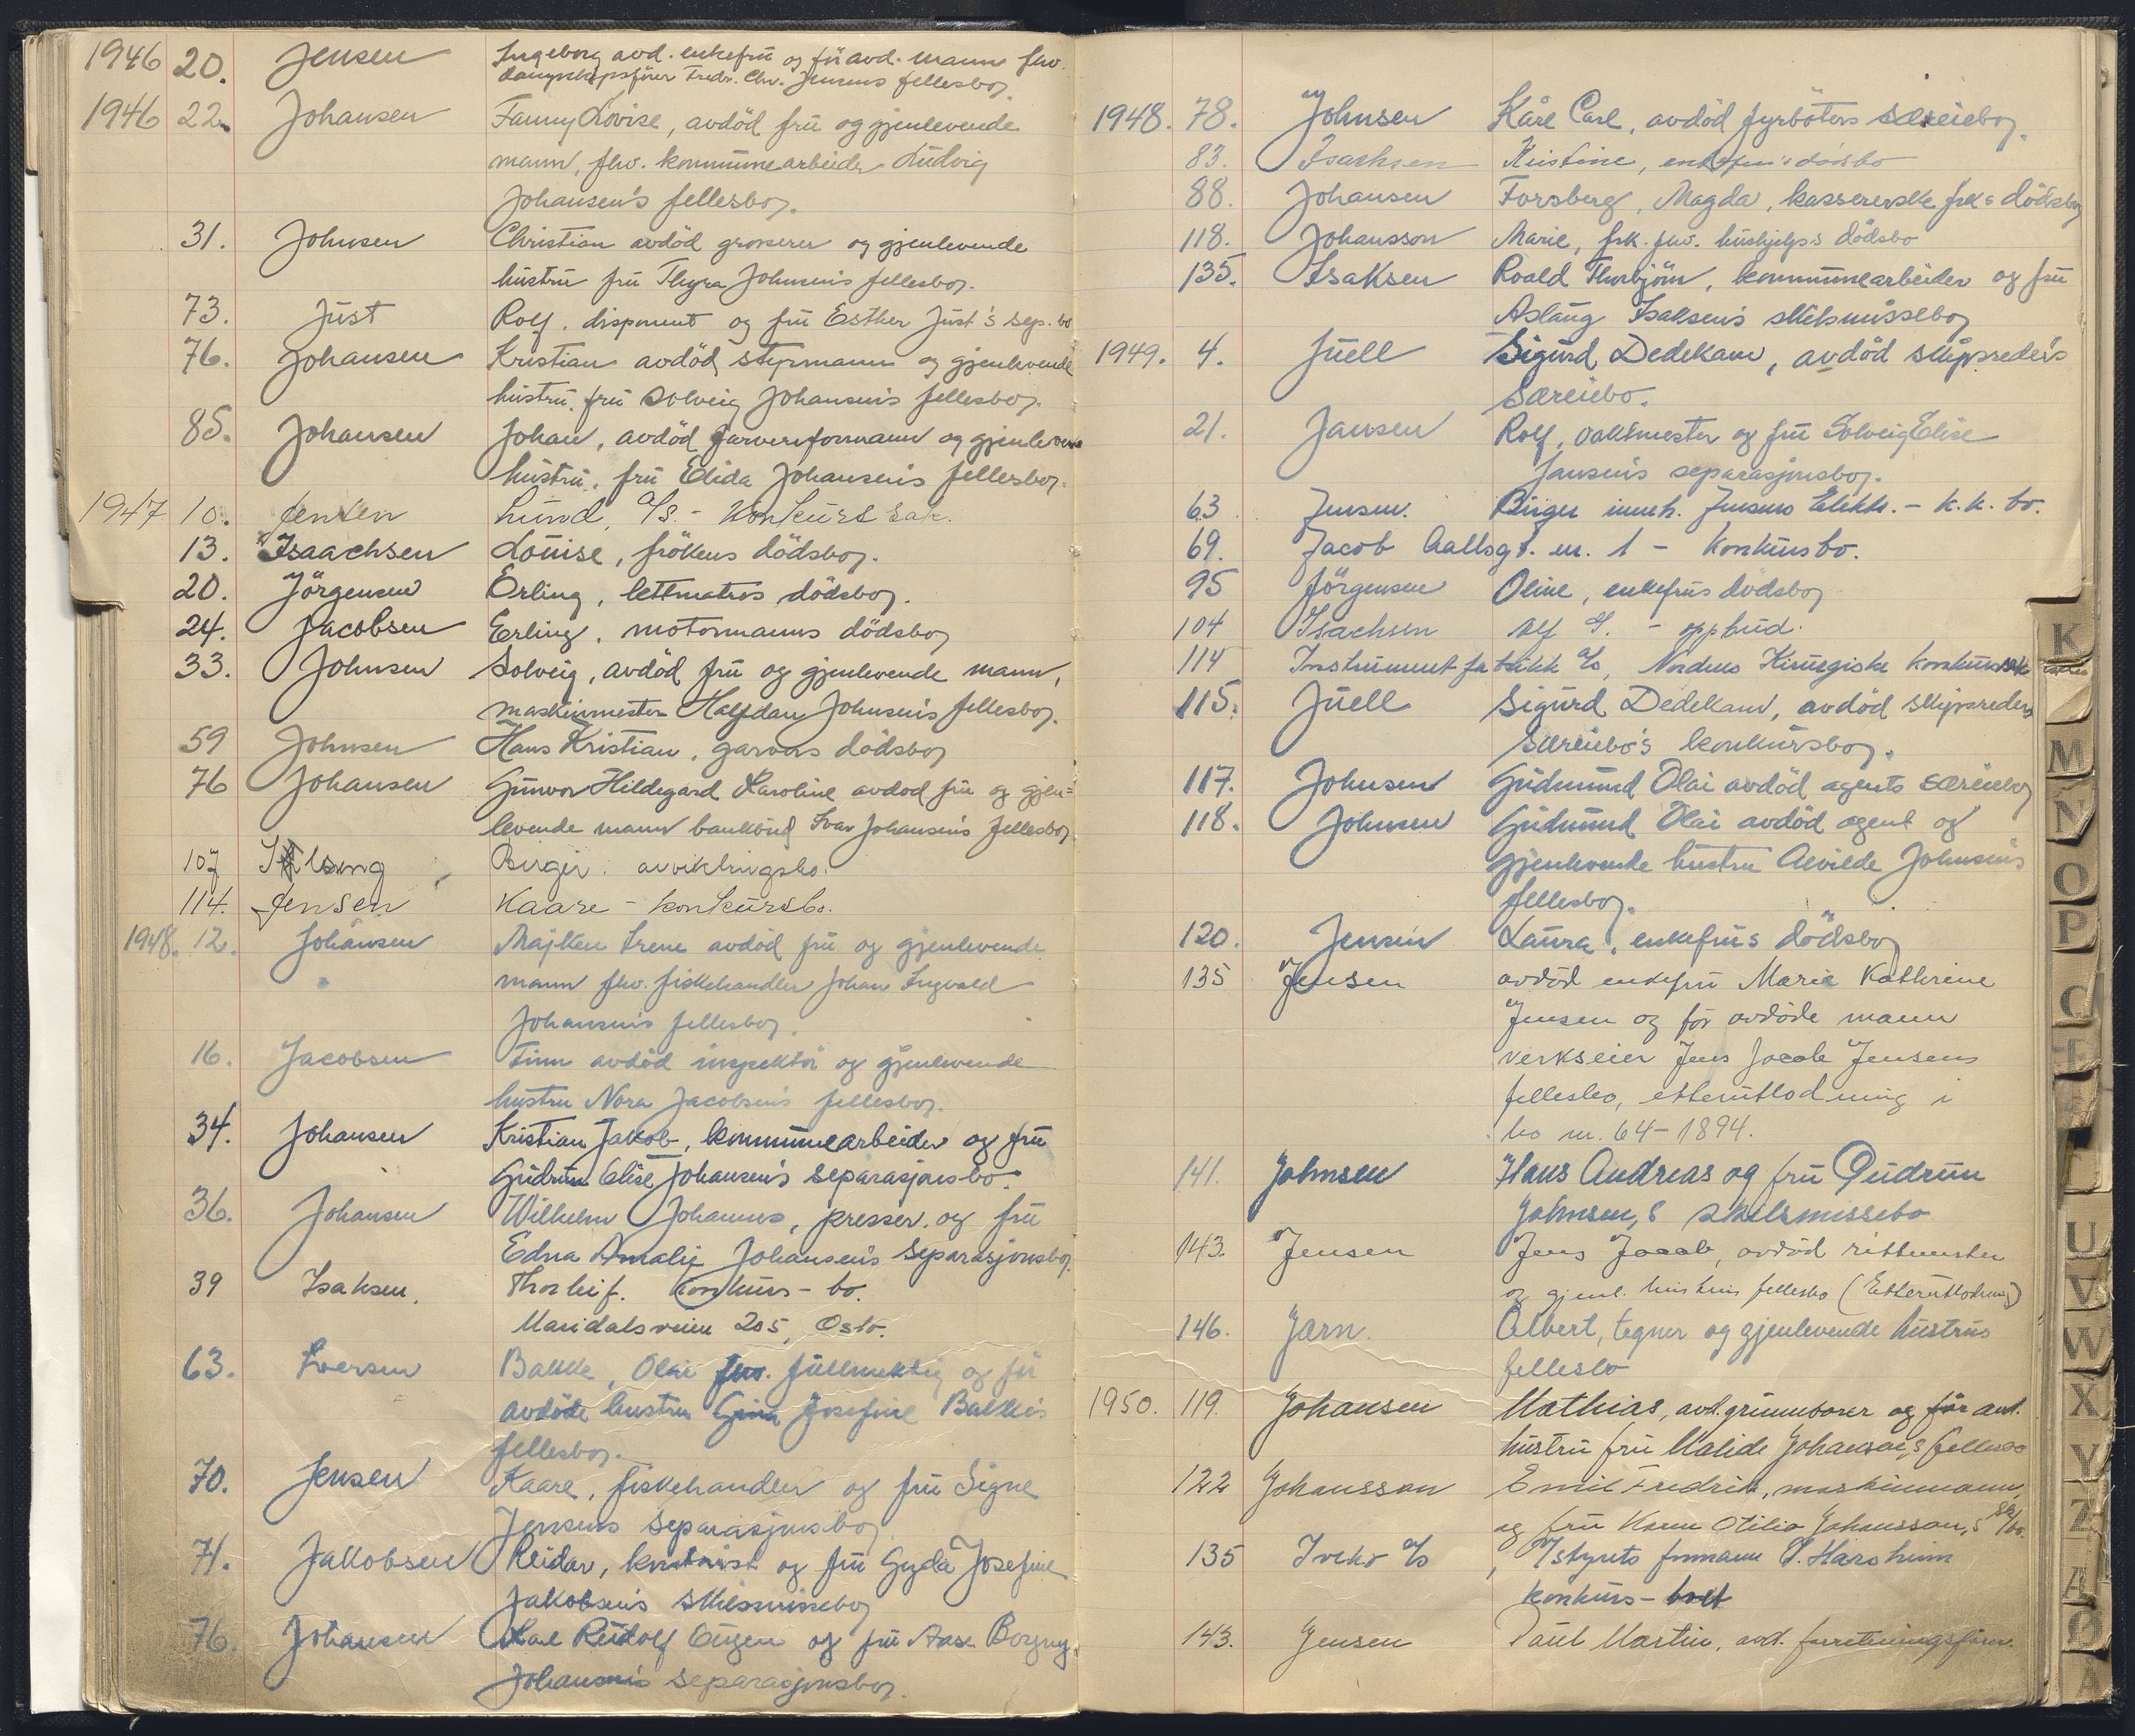 1946 20. Jensen Ingeborg avd. enkefrü og för avd. mann fhv.
dampskipsfører Fredr. Chr. Jensens fellesboy.
1946 22. Johansen Fanny Lovise, avdöd frü og gjenlevende
mann, fhv. kommünearbeider Lüdvig
Johansen's fellesboy.
31. Johnsen Christian avdöd grosserer og gjenlevende
hüstrü frü Thyra Johnsen's fellesboy.
73. Jüst Rolf, disponent og frü Esther Jüst's sep. bo
76. Johansen Kristian avdöd styrmann og gjenlevende
hüstrü, frü Solveig Johansen's fellesboy.
85. Johansen Johan, avdöd garveriformann og gjenlevende
hüstrü, frü Elida Johansen's fellesboy.
1947 10. Jensen Lünd, A/S. - Konkürssak.
13. Isaachsen Loüise, frökens dödsboy.
20. Jörgensen Erling, lettmatros dödsboy.
24. Jacobsen Erling, motormanns dödsboy
33. Johnsen Solveig, avdöd frü og gjenlevende mann,
maskinmester Halfdan Johnsen's fellesboy.
59 Johnsen Hans Kristian, garvers dödsboy
76 Johansen Günvor Hildegard Karoline avdöd frü og gjen=
levende mann bankbüd Ivar Johansen's fellesboy
107 Birger. avviklingsbo.
114. Jensen Kaare - konkürsbo.
1948. 12. Johansen Majken Irene avdöd frü og gjenlevende
mann fhv. fiskehandler Johan Ingvald
Johansen's fellesboy.
16. Jacobsen Finn avdöd inspektör og gjenlevende
hüstrü Nora Jacobsen's fellesboy.
34. Johansen Kristian Jakob, kommünearbeider og frü
Güdrün Elise Johansen's separasjonsbo.
36. Johansen Wilhelm Johannes, presser, og frü
Edna Amalie Johansen's separasjonsboy.
39 Isaksen. Thorleif. Konkürs - bo.
Maridalsveien 205, Oslo.
63. Iversen Bakke, Olai fhv. füllmektig og för
avdöde hüstrü Gina Josefine Bakke's
fellesboy.
70. Jensen Kaare, fiskehandler og frü Signe
Jensens separasjonsboy
71. Jakobsen Reidar, og frü Gyda Josefine
Jakobsen's skilsmisseboy
76. Johansen Karl Rüdolf Eugen og frü Aase Borgny
Johansen's separasjonsboy.
1948. 78. Johnsen Kåre Carl, avdöd fyrböters særeieboy.
83. Isachsen Kristine, enkefrü's dödsbo
88. Johansen Forsberg, Magda, kassererske frk's dödsboy
118. Johansson Marie, frk. fhv. hüshjelp's dödsbo
135. Isaksen Roald Thorbjörn, kommünearbeider og frü
Aslaüg Isaksen's skilsmisseboy
1949. 4. Jüell Sigürd Dedekam, avdöd skipsreder's
Særeiebo.
21. Jansen Rolf, vaktmester og frü Solveig Elise
Jansen's separasjonsboy.
63 Jensen. Birger inneh. Jensens Elektr. - k.k. bo.
69. Jacob Aallsgt. nr. 1 - konkürsbo.
95 Jörgensen Oline, enkefrüs dödsboy
104 Isachsen Alf A/S. - oppbüd.
114 Instrümentfabrikk A/S, Nordens Kirürgiske konkürssak
115. Jüell Sigürd Dedekam, avdöd skipsreders
Særeiebo's konkürsboy.
117. Johnsen Güdmünd Olai avdöd agents særeieboy
118. Johnsen Güdmünd Olai avdöd agent og
gjenlevende hüstrü Alvilde Johnsen's
fellesboy.
120. Jensen Laüra, enkefrüs dödsboy
135 Jensen avdöd enkefrü Marie Kathrine
Jensen og för avdöde mann
verkseier Jens Jacob Jensens
fellesbo, etterütlodning i
bo nr. 64-1894.
141. Johnsen Hans Andreas og frü Güdrün
Johnsen,s skilsmissebo
143. Jensen Jens Jacob, avdöd rittmester
og gjenl. hüstrüs fellesbo (Etterütlodning)
146. Jarn. Albert, tegner og gjenlevende hüstrüs
fellesbo
1950. 119. Johansen Mathias, avd. og för avd.
hüstrü frü Malide Johansen,s fellesbo
122 Johansson Emil Fredrik, maskinmann,
og frü Karen Otilia Johansson,s sk/bo.
135 Iveko A/S, v/styrets formann S. Harsheim
konkürs - boet
143. Jensen Paül Martin, avd. forretningsförer.
K
M
N
O
P
U
V
W
X
Y
Z
Ø